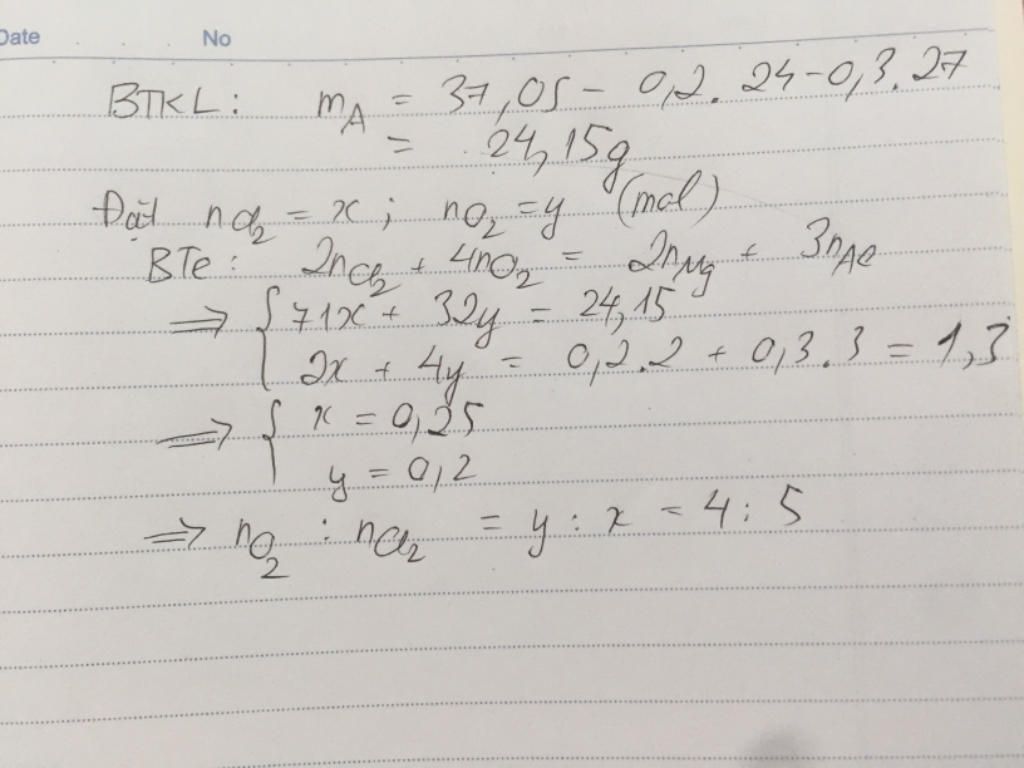 Date No
BTKL: mA = 37,05 - 0,2. 24-0,3.27
= 24,15g
Đặt nCl2 = x ; nO2 = y (mol)
BTe: 2nCl2 + 4nO2 = 2nMg + 3nAl
⇒ { 71x + 32y = 24,15
2x + 4y = 0,2.2 + 0,3.3 = 1,3
⇒ { x = 0,25
y = 0,2
⇒ nO2 : nCl2 = y : x = 4 : 5